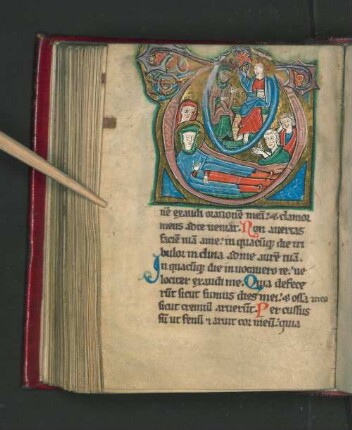 ne exaudi orationē meā: & clamor
meus ad te ueniat. Non auertas
faciē tuā a me: in quacūq; die tri
bulor inclina ad me aurē tuā.
In quacūq; die inuocauero te: ue
lociter exaudi me. Quia defece
rūt sicut fumus dies mei: & ossa mea
sicut cremiū aruerūt. Percussus
sū ut fenū & aruit cor meū: quia